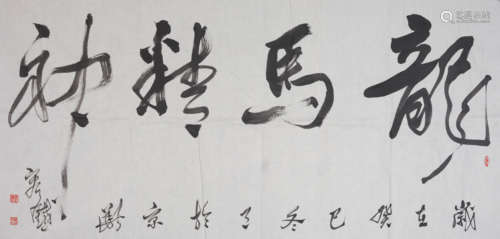 龍馬精神
歲在癸巳冬月於京